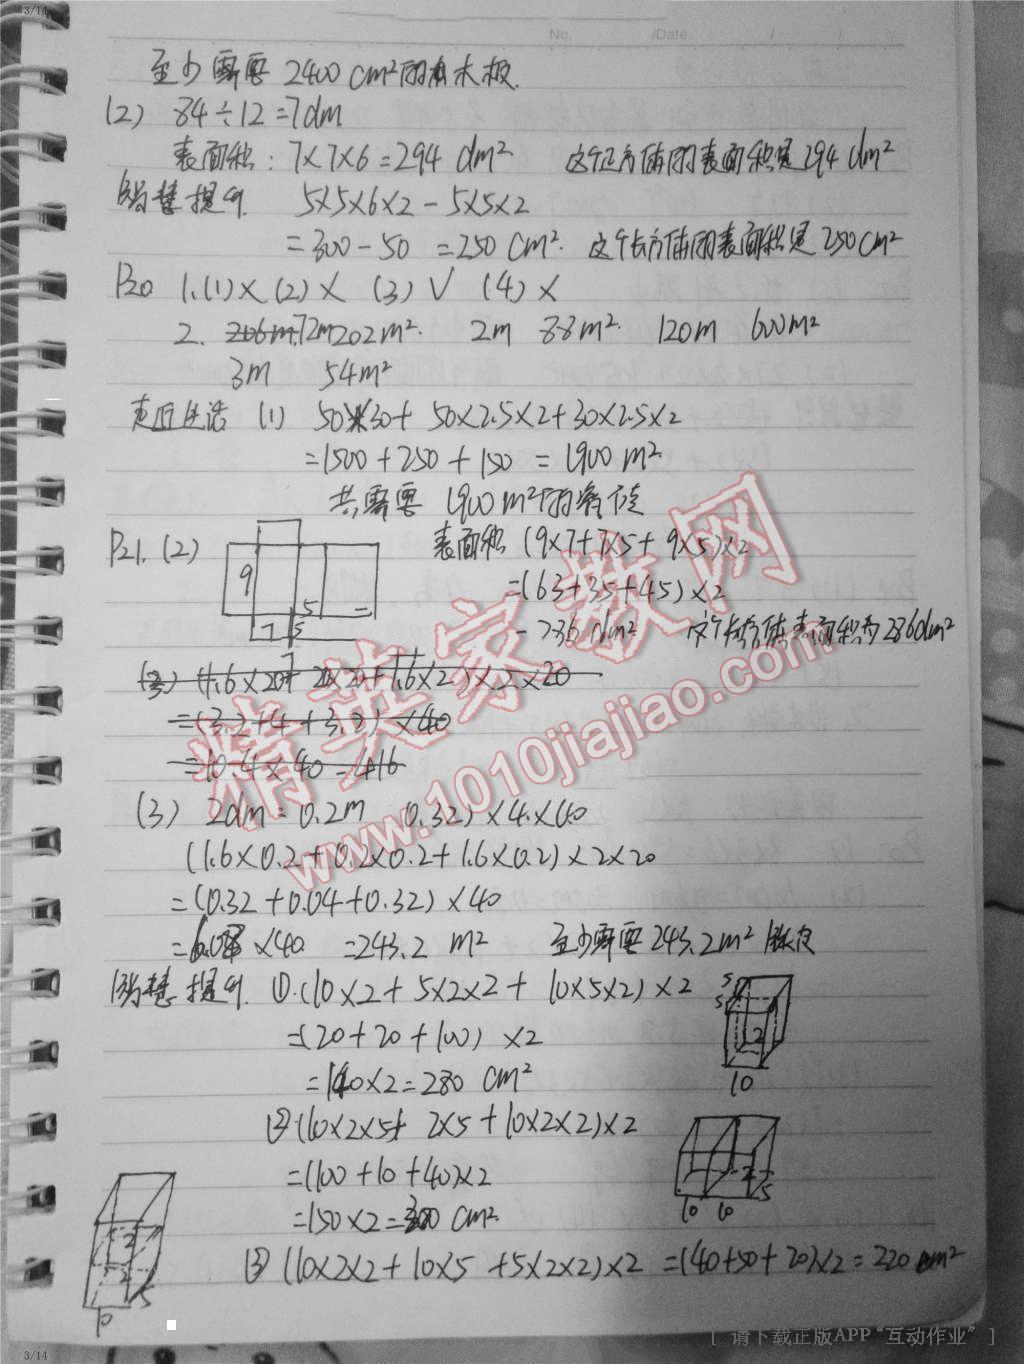 3/14
No. /Date / /
至少需要 2400 cm²的木板.
(2) 84÷12=7dm
表面积: 7×7×6=294 dm² 这个正方体的表面积是294 dm²
智慧提升 5×5×6×2-5×5×2
=300-50 =250 cm². 这个长方体的表面积是 250cm²
P20 1.(1)× (2)× (3)√ (4)×
2. 72m 202m². 2m 88m². 120m 600m²
3m 54m²
走近生活 (1) 50×30+50×2.5×2+30×2.5×2
=1500+250+150=1900 m².
共需要 1900m²的瓷砖
P21. (2) 表面积 (9×7+7×5+9×5)×2
9
=(63+35+45)×2
5
7 5
=286 dm² 这个长方体表面积为286dm²
(3) (1.6×20+20×20+1.6×2)×2×20
=(3.2+4+3.2)×40
=10.4×40=416
(3) 2dm=0.2m 0.32)×4.×40
(1.6×0.2+0.2×0.2+1.6×0.2)×2×20
=(0.32+0.04+0.32)×40
=6.08×40 =243.2 m² 至少需要243.2m²铁皮
智慧提升 ①.(10×2+5×2×2+10×5×2)×2
5
5
2
10
=(20+20+100)×2
=140×2=280 cm²
②(10×2×5+2×5+10×2×2)×2
=(100+10+40)×2
2
5
10 10
=150×2=300 cm².
③(10×2×2+10×5+5×2×2)×2 =(40+50+20)×2=220 cm²
2
2
5
10
精英家教网
www.1010jiajiao.com
[ 请下载正版APP“互动作业” ]
3/14